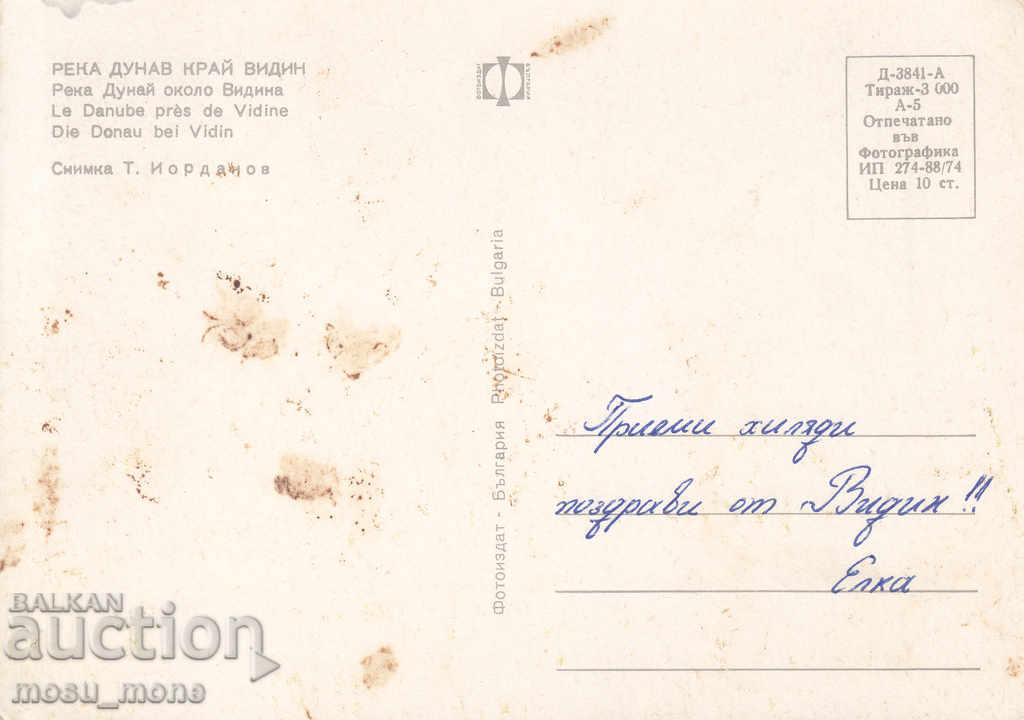 РЕКА ДУНАВ КРАЙ ВИДИН
Река Дунай около Видина
Le Danube près de Vidine
Die Donau bei Vidin
Снимка Т. Иорданов
ФОТОИЗДАТ БЪЛГАРИЯ
Д-3841-А
Тираж-3 000
А-5
Отпечатано
във
Фотографика
ИП 274-88/74
Цена 10 ст.
Фотоиздат - България Photoizdat - Bulgaria
Приеми хиляди
поздрави от Видин!!
Елка
BALKAN
auction
mosu_mone